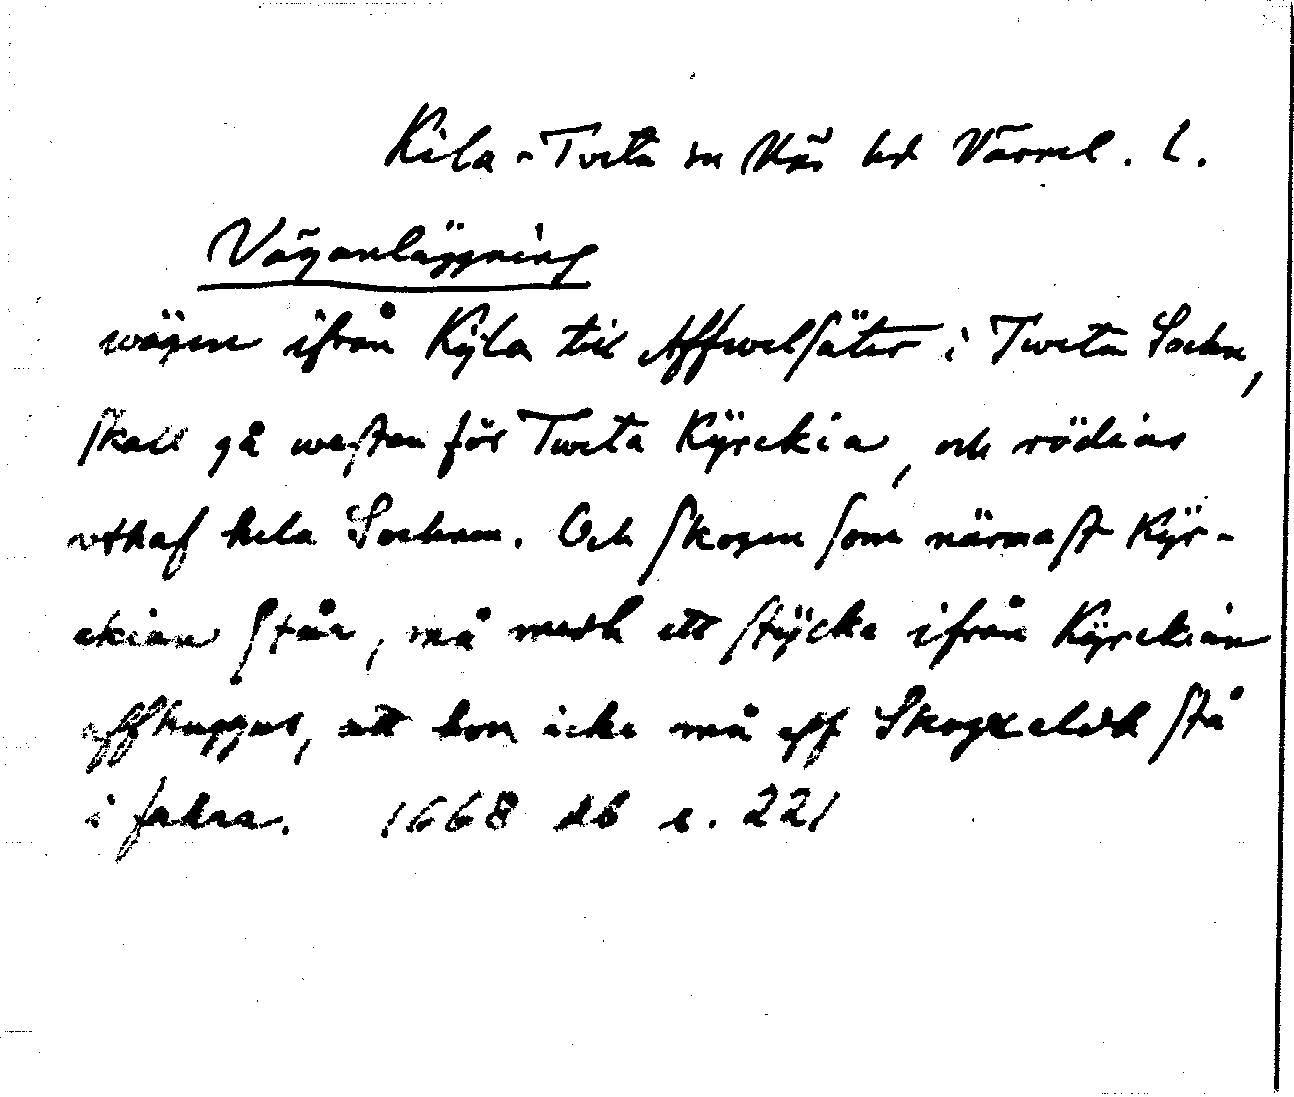 Kila - Tveta sn Näs hd Värml. l.
Väganläggning
wägen ifrån Kÿla til Affwelsäter i Tweta Sockn,
skall gå westan för Tweta Kÿrckia, och rödias
vthaf hela Socknen. Och skogen som närmast Kÿr-
ckian står, må medh ett stÿcke ifrån Kÿrckian
affhuggas, att hon icke må aff Skogxeldh stå
i fahra. 1668 db s. 221